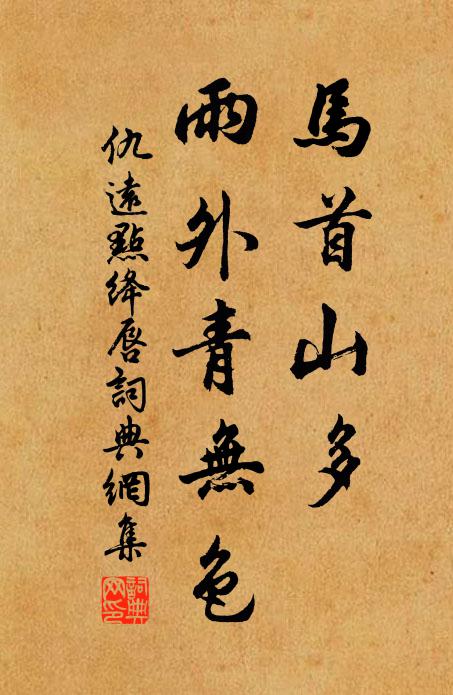 馬首山多
雨外青無色
仇遠點絳唇詞典網集
詞典
网印